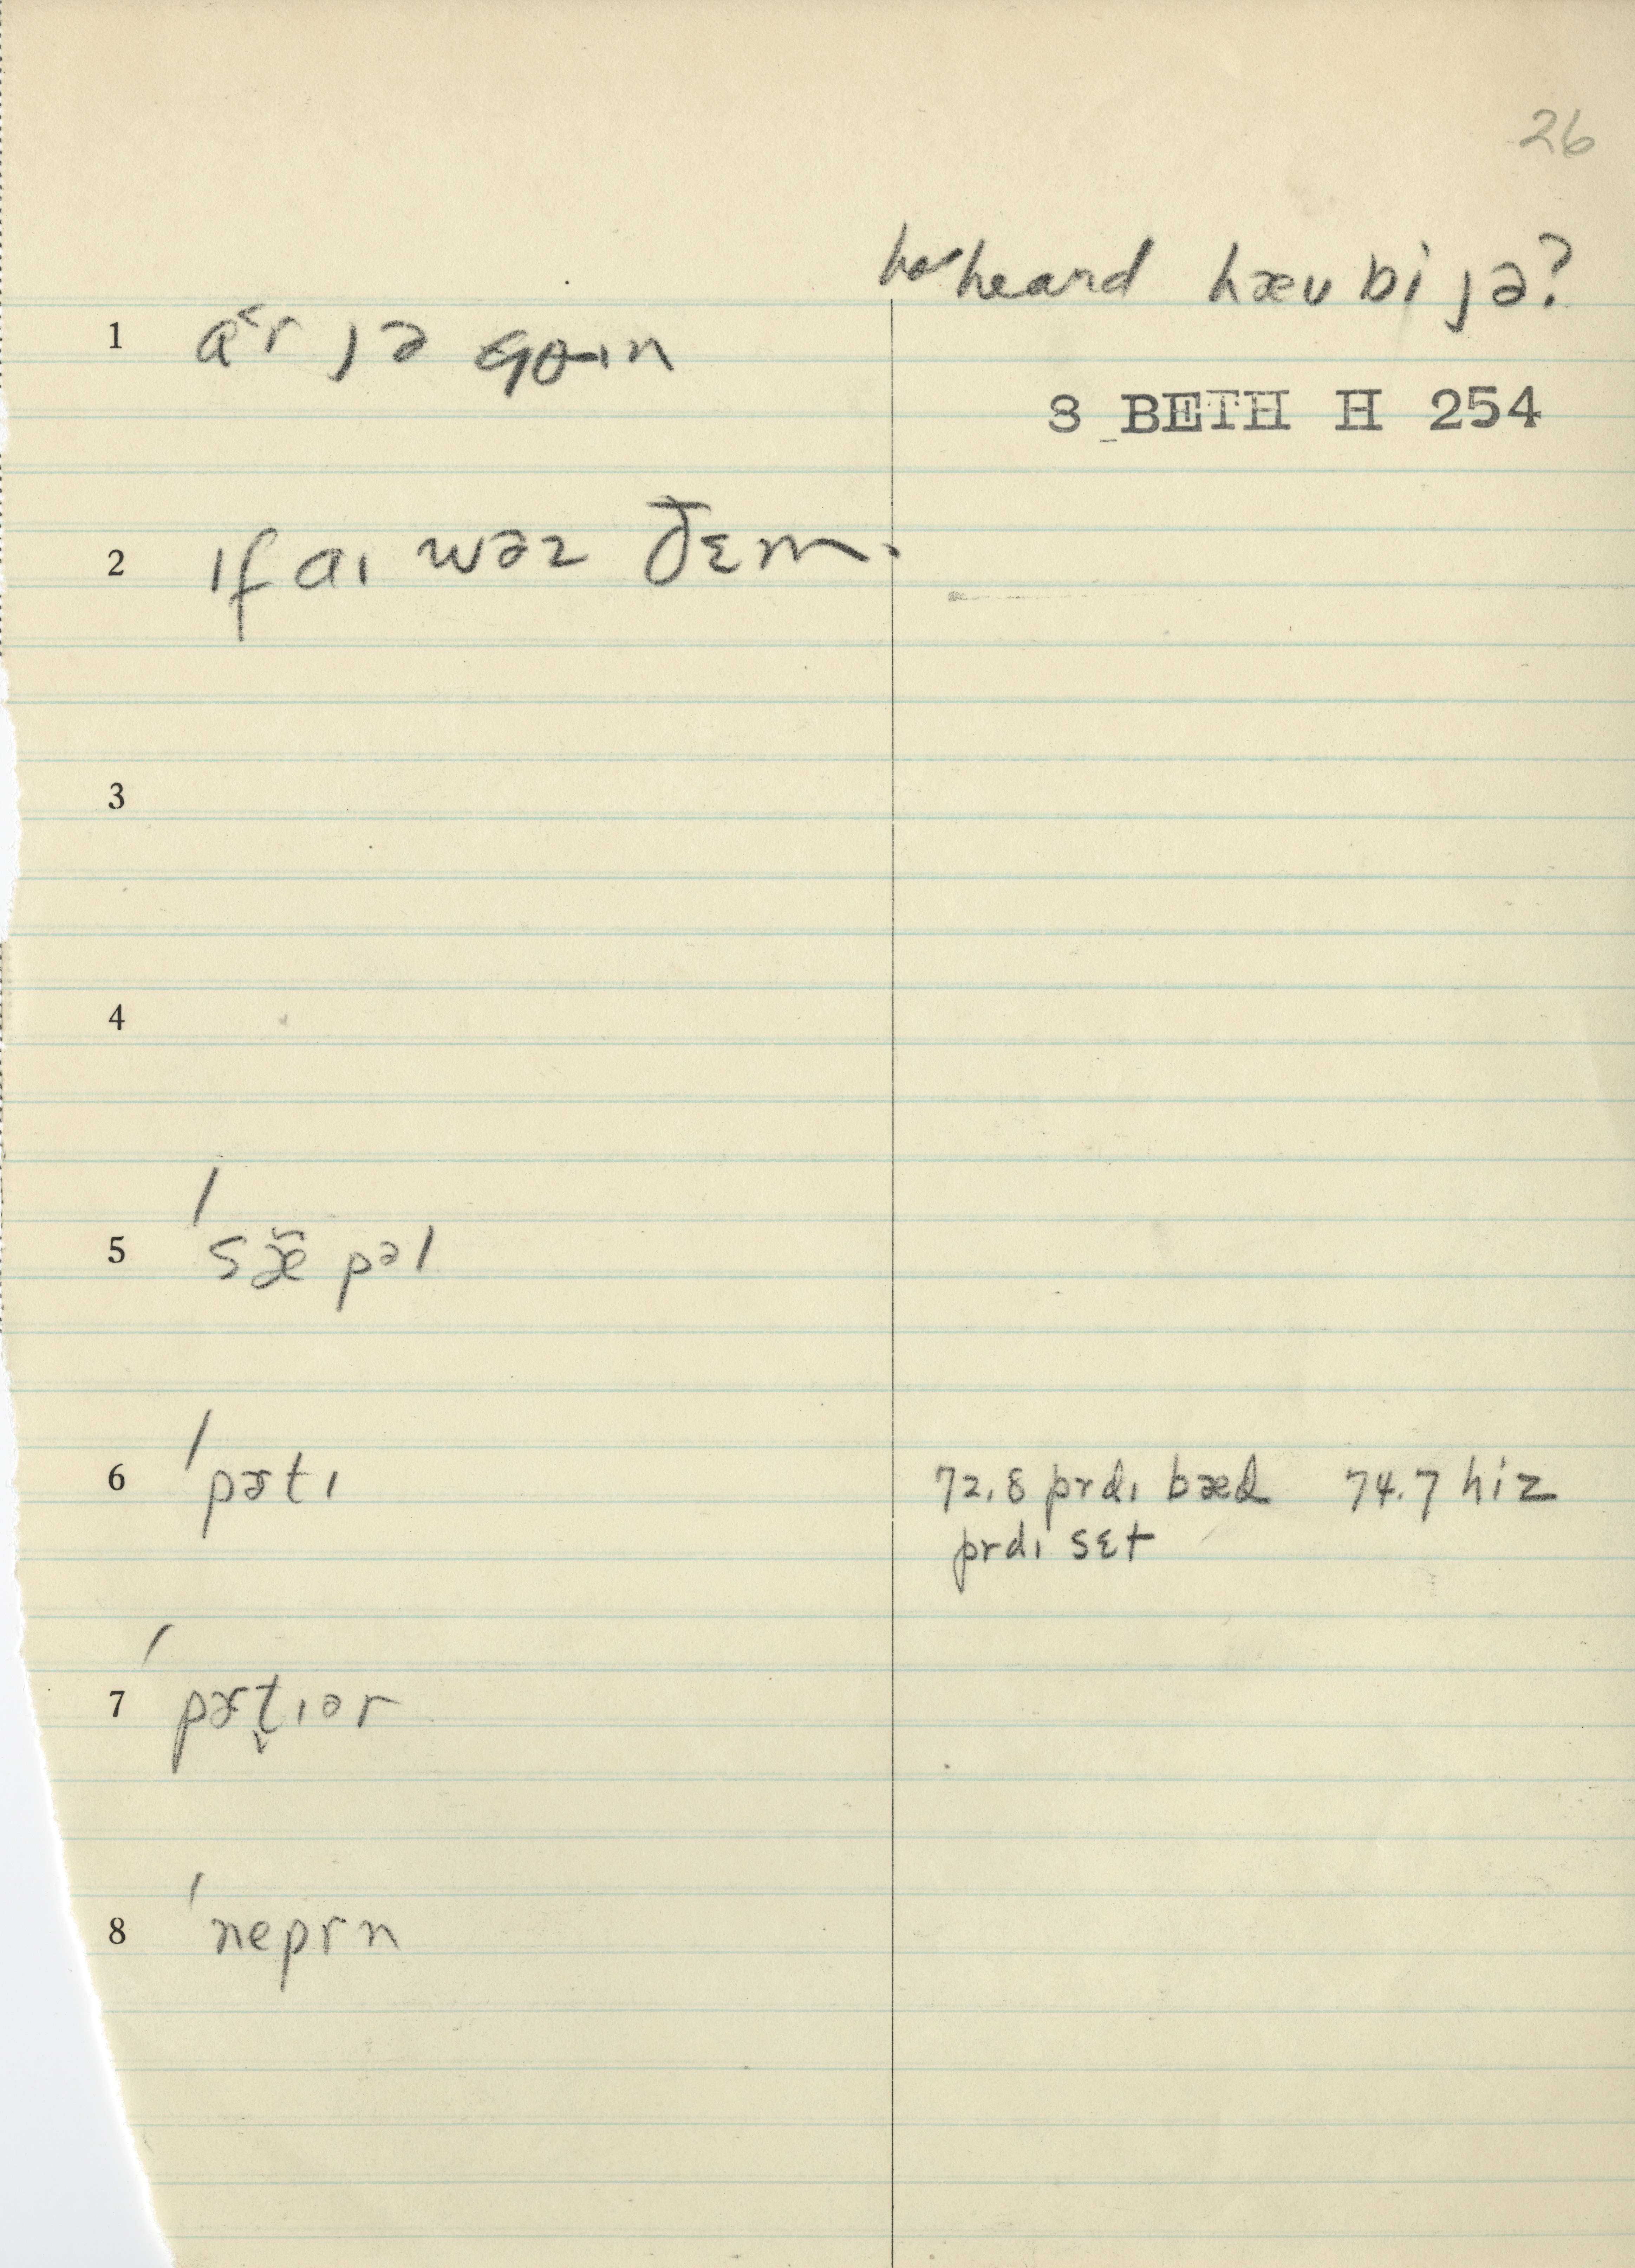 26
has heard hæu bi jə?
1 a˂r jə goɪn
3 BETH H 254
2 ɪf aɪ wəz ðɛm.
3
4
5 / sæ̃pəl
6 / pɚtɪ 72.8 prdɪ bæd 74.7 hiz
prdɪ sɛt
7 / pɚt̬ɪər
8 / neprn